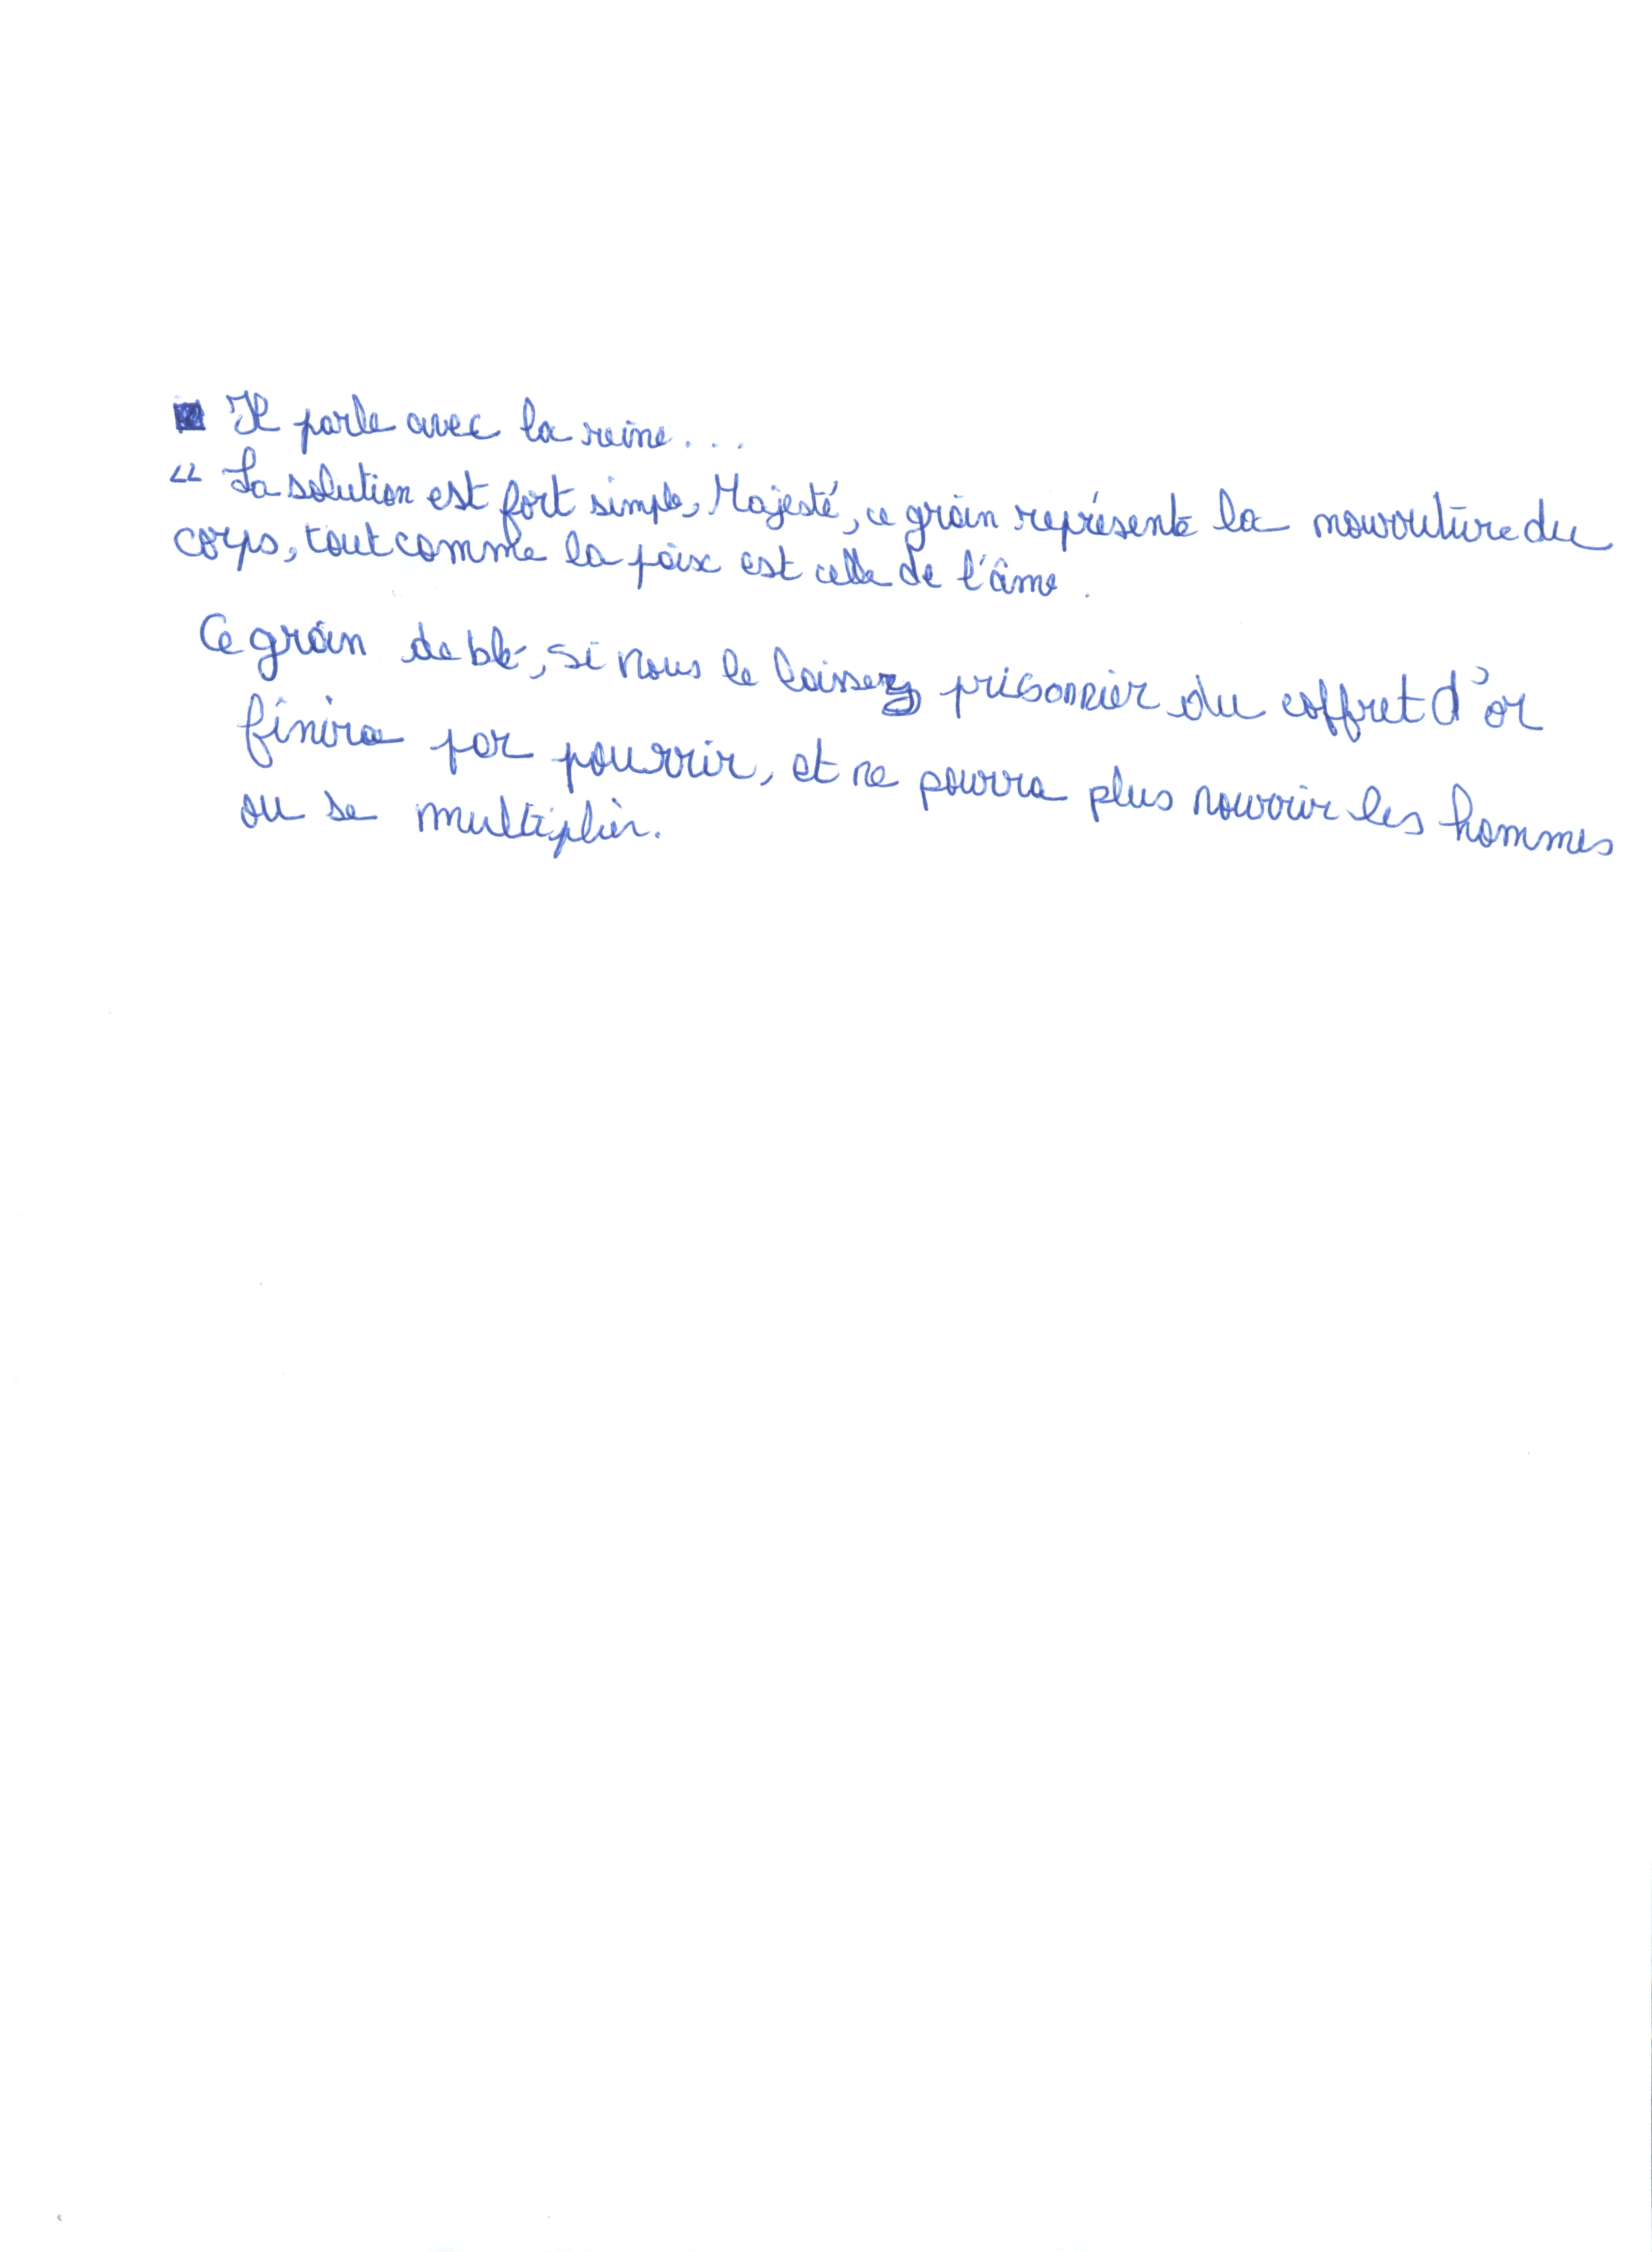 Il parle avec la reine...
« La solution est fort simple, Majesté, ce grain représente la nourriture du
corps, tout comme la paix est celle de l'âme.
Ce grain de blé, si nous le laissez prisonnier du coffret d'or
finira par pourrir, et ne pourra plus nourrir les hommes
ou se multiplier.